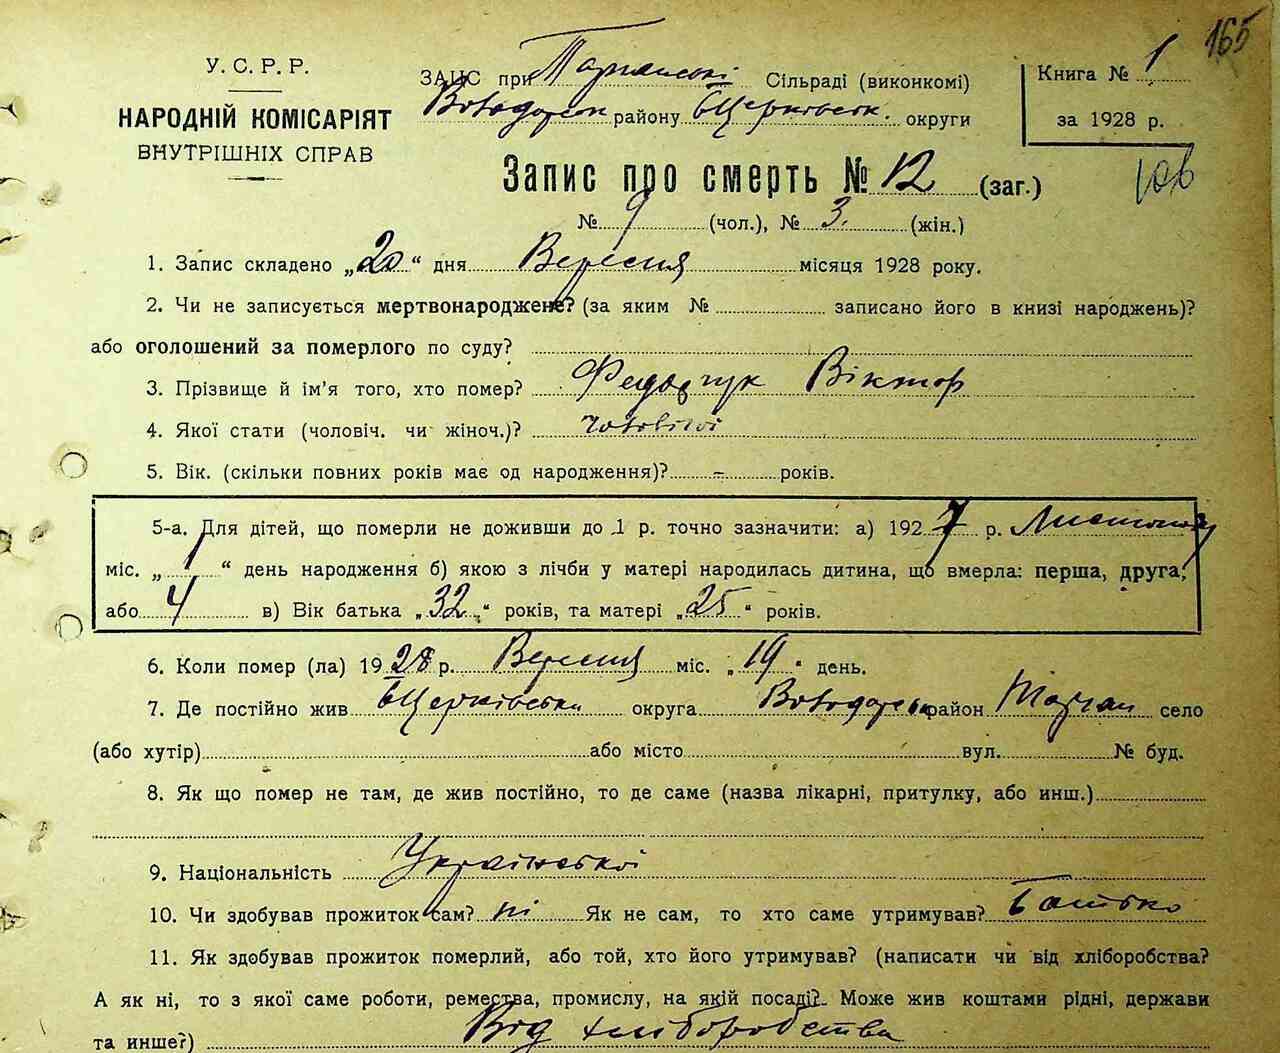 165
У. С. Р. Р.
НАРОДНІЙ КОМІСАРІЯТ
ВНУТРІШНІХ СПРАВ
ЗАГС при Тарганські Сільраді (виконкомі)
Володарськ району БЦерківськ. округи
Книга № 1
за 1928 р.
Запис про смерть № 12 (заг.)
№ 9 (чол.), № 3. (жін.)
1. Запис складено „20“ дня Вересня місяця 1928 року.
2. Чи не записується мертвонароджене? (за яким № записано його в книзі народжень)?
або оголошений за померлого по суду?
3. Прізвище й ім'я того, хто помер? Федорчук Віктор
4. Якої стати (чоловіч. чи жіноч.)? чоловічої
5. Вік. (скільки повних років має од народження)? - років.
5-а. Для дітей, що померли не доживши до 1 р. точно зазначити: а) 1927 р. Листопад
міс. „1“ день народження б) якою з лічби у матері народилась дитина, що вмерла: перша, друга,
або 4 в) Вік батька „32“ років, та матері „25“ років.
6. Коли помер (ла) 1928 р. Вересня міс. „19“ день.
7. Де постійно жив БЦерківська округа Володарськ район Тарган село
(або хутір) або місто вул. № буд.
8. Як що помер не там, де жив постійно, то де саме (назва лікарні, притулку, або инш.)
9. Національність Української
10. Чи здобував прожиток сам? ні Як не сам, то хто саме утримував? Батько
11. Як здобував прожиток померлий, або той, хто його утримував? (написати чи від хліборобства?
А як ні, то з якої саме роботи, ремества, промислу, на якій посаді? Може жив коштами рідні, держави
та инше?) Від хліборобства